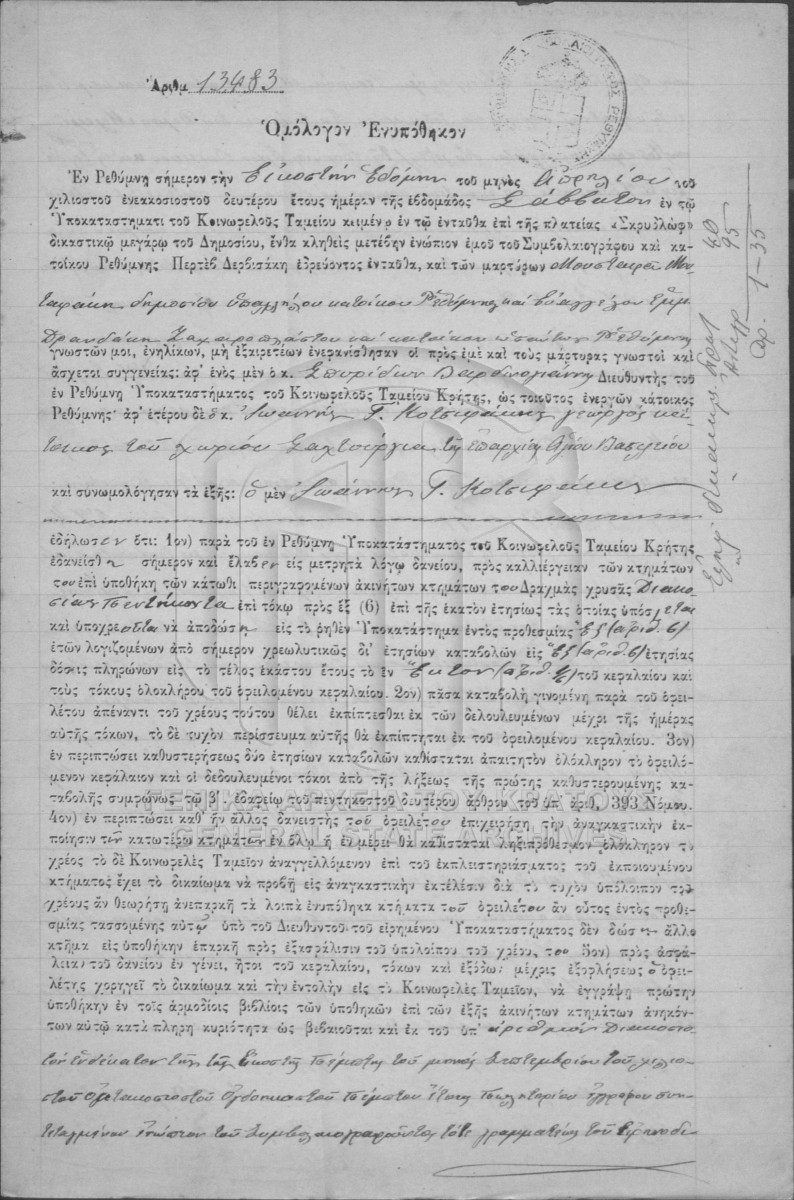 Ἀριθμ 13483
Ὁμόλογον Ἐνυπόθηκον
Ἐν Ρεθύμνῃ σήμερον τὴν εἰκοστὴν ἑβδόμην τοῦ μηνὸς Ἀπριλίου τοῦ
χιλιοστοῦ ἐνεακοσιοστοῦ δευτέρου ἔτους ἡμέραν τῆς ἑβδομάδος Σάββατον ἐν τῷ
Ὑποκαταστηματι τοῦ Κοινωφελοῦς Ταμείου κειμένῳ ἐν τῷ ἐνταῦθα ἐπὶ τῆς πλατείας «Σκρυδλὼφ»
δικαστικῷ μεγάρῳ τοῦ Δημοσίου, ἔνθα κληθεὶς μετέβην ἐνώπιον ἐμοῦ τοῦ Συμβολαιογράφου καὶ κα-
τοίκου Ρεθύμνης Περτὲβ Δερβισάκη ἑδρεύοντος ἐνταῦθα, καὶ τῶν μαρτύρων Μουσταφᾶ Μου
ταφάκη δημοσίου ὑπαλλήλου κατοίκου Ρεθύμνης καὶ Εὐαγγέλου Ἐμμ
Δρανδάκη Ζαχαροπλάστου καὶ κατοίκου ὡσαύτως Ρεθύμνης
γνωστῶν μοι, ἐνηλίκων, μὴ ἐξαιρετέων ἐνεφανίσθησαν οἱ πρὸς ἐμὲ καὶ τοὺς μάρτυρας γνωστοὶ καὶ
ἄσχετοι συγγενείας: ἀφ' ἑνὸς μὲν ὁ κ. Σπυρίδων Βαρδινογιάννης Διευθυντὴς τοῦ
ἐν Ρεθύμνῃ Ὑποκαταστήματος τοῦ Κοινωφελοῦς Ταμείου Κρήτης, ὡς τοιοῦτος ἐνεργῶν κάτοικος
Ρεθύμνης· ἀφ' ἑτέρου δὲ ὁ κ. Ἰωάννης Γ. Κοτσιφάκης γεωργὸς κά-
τοικος τοῦ χωρίου Σαχτούργια τῆς ἐπαρχίας Ἁγίου Βασιλείου
καὶ συνωμολόγησαν τὰ ἑξῆς: ὁ μὲν Ἰωάννης Γ. Κοτσιφάκης
ἐδήλωσεν ὅτι: 1ον) παρὰ τοῦ ἐν Ρεθύμνῃ Ὑποκαταστήματος τοῦ Κοινωφελοῦς Ταμείου Κρήτης
ἐδανείσθη σήμερον καὶ ἔλαβεν εἰς μετρητὰ λόγῳ δανείου, πρὸς καλλιέργειαν τῶν κτημάτων
του ἐπὶ ὑποθήκῃ τῶν κάτωθι περιγραφομένων ἀκινήτων κτημάτων του Δραχμὰς χρυσᾶς Διακο-
σίας πεντήκοντα ἐπὶ τόκῳ πρὸς ἓξ (6) ἐπὶ τῆς ἑκατὸν ἐτησίως τὰς ὁποίας ὑπόσχεται
καὶ ὑποχρεοῦται νὰ ἀποδώσῃ εἰς τὸ ῥηθὲν Ὑποκατάστημα ἐντὸς προθεσμίας ἓξ (ἀριθ. 6)
ἐτῶν λογιζομένων ἀπὸ σήμερον χρεωλυτικῶς δι' ἐτησίων καταβολῶν εἰς ἓξ (ἀριθ. 6) ἐτησίας
δόσεις πληρώνων εἰς τὸ τέλος ἑκάστου ἔτους τὸ ἓν ἕκτον (ἀριθ 1/6) τοῦ κεφαλαίου καὶ
τοὺς τόκους ὁλοκλήρου τοῦ ὀφειλομένου κεφαλαίου. 2ον) πᾶσα καταβολὴ γινομένη παρὰ τοῦ ὀφει-
λέτου ἀπέναντι τοῦ χρέους τούτου θέλει ἐκπίπτεσθαι ἐκ τῶν δελουλευμένων μέχρι τῆς ἡμέρας
αὐτῆς τόκων, τὸ δὲ τυχὸν περίσσευμα αὐτῆς θὰ ἐκπίπτηται ἐκ τοῦ ὀφειλομένου κεφαλαίου. 3ον)
ἐν περιπτώσει καθυστερήσεως δύο ἐτησίων καταβολῶν καθίσταται ἀπαιτητὸν ὁλόκληρον τὸ ὀφειλό-
μενον κεφάλαιον καὶ οἱ δεδουλευμένοι τόκοι ἀπὸ τῆς λήξεως τῆς πρώτης καθυστερουμένης κα-
ταβολῆς συμφώνως τῷ β'. ἐδαφείῳ τοῦ πεντηκοστοῦ δευτέρου ἄρθρου τοῦ ὑπ' ἀριθ, 393 Νόμου.
4ον) ἐν περιπτώσει καθ' ἣν ἄλλος δανειστὴς τοῦ ὀφειλέτου ἐπιχειρήσῃ τὴν ἀναγκαστικὴν ἐκ-
ποίησιν τῶν κατωτέρω κτημάτων ἐν ὅλῳ ἢ ἐν μέρει θὰ καθίσταται ληξιπρόθεσμον ὁλόκληρον τὸ
χρέος τὸ δὲ Κοινωφελὲς Ταμεῖον ἀναγγελλόμενον ἐπὶ τοῦ ἐκπλειστηριάσματος τοῦ ἐκποιουμένου
κτήματος ἔχει τὸ δικαίωμα νὰ προβῇ εἰς ἀναγκαστικὴν ἐκτέλεσιν διὰ τὸ τυχὸν ὑπόλοιπον τοῦ
χρέους ἂν θεωρήσῃ ἀνεπαρκῆ τὰ λοιπὰ ἐνυπόθηκα κτήματα τοῦ ὀφειλέτου ἂν οὗτος ἐντὸς προθε-
σμίας τασσομένης αὐτῷ ὑπὸ τοῦ Διευθυντοῦ τοῦ εἰρημένου Ὑποκαταστήματος δὲν δώσῃ ἄλλο
κτῆμα εἰς ὑποθήκην ἐπαρκῆ πρὸς ἐξασφάλισιν τοῦ ὑπολοίπου τοῦ χρέους του 5ον) πρὸς ἀσφά-
λειαν τοῦ δανείου ἐν γένει, ἤτοι τοῦ κεφαλαίου, τόκων καὶ ἐξόδων μέχρις ἐξοφλήσεως ὁ ὀφει-
λέτης χορηγεῖ τὸ δικαίωμα καὶ τὴν ἐντολὴν εἰς τὸ Κοινωφελὲς Ταμεῖον, νὰ ἐγγράψῃ πρώτην
ὑποθήκην ἐν τοῖς ἁρμοδίοις βιβλίοις τῶν ὑποθηκῶν ἐπὶ τῶν ἑξῆς ἀκινήτων κτημάτων ἀνηκόν-
των αὐτῷ κατὰ πλήρη κυριότητα ὡς βεβαιοῦται καὶ ἐκ τοῦ ὑπ' ἀριθμὸν Διακοσιο-
στὸν ἑνδέκατον τῆς εἰκοστῆς πέμπτης τοῦ μηνὸς Σεπτεμβρίου τοῦ χιλιο-
στοῦ ὀκτακοσιοστοῦ ὀγδοηκοστοῦ πέμπτου ἔτους πωλητηρίου ἐγγράφου συν-
τεταγμένου ἐνώπιον τοῦ Συμβολαιογραφοῦντος τότε γραμματέως τοῦ Εἰρηνοδι-
80
95
Δρ. 1-35
ΓΕΝΙΚΑ ΑΡΧΕΙΑ ΤΟΥ ΚΡΑΤΟΥΣ
GENERAL STATE ARCHIVES